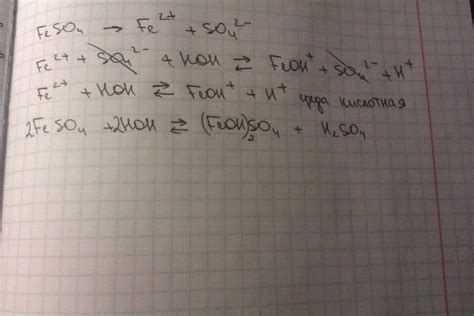 FeSO₄ → Fe²⁺ + SO₄²⁻
Fe²⁺ + SO₄²⁻ + HOH ⇄ FeOH⁺ + SO₄²⁻ + H⁺
Fe²⁺ + HOH ⇄ FeOH⁺ + H⁺ среда кислотная
2FeSO₄ + 2HOH ⇄ (FeOH)₂SO₄ + H₂SO₄